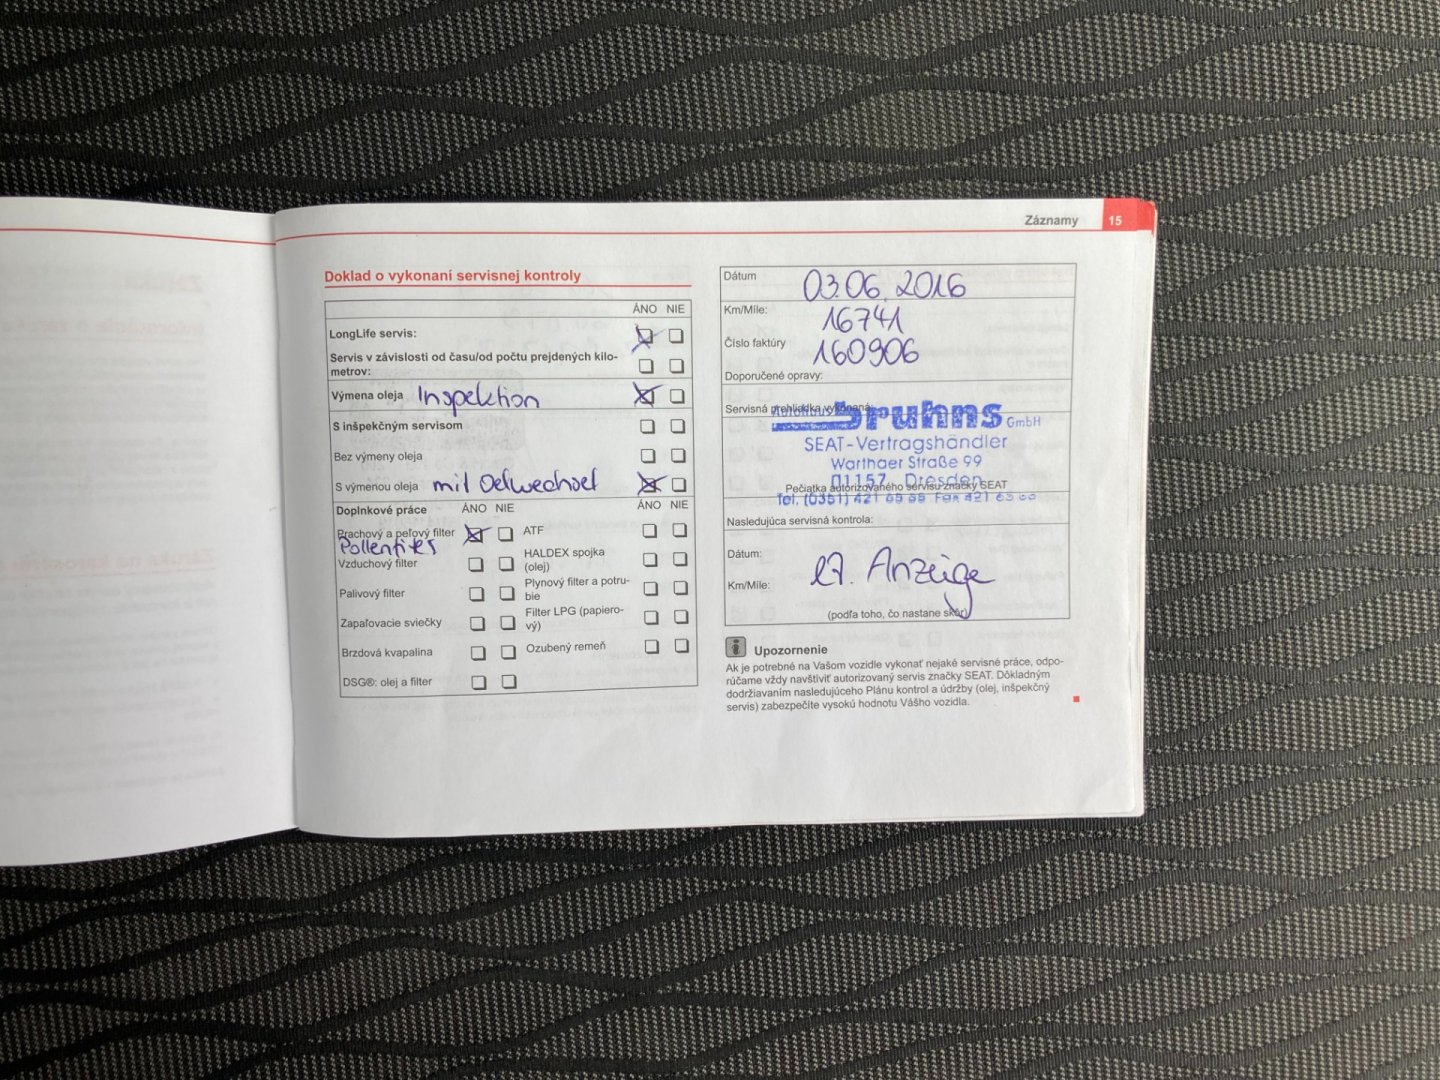 Záznamy 15
Doklad o vykonaní servisnej kontroly
ÁNO NIE
LongLife servis:
Servis v závislosti od času/od počtu prejdených kilo-
metrov:
Výmena oleja Inspektion
S inšpekčným servisom
Bez výmeny oleja
S výmenou oleja mit Oelwechsel
Doplnkové práce ÁNO NIE ÁNO NIE
Prachový a peľový filter
Pollenfilter
ATF
Vzduchový filter
HALDEX spojka
(olej)
Palivový filter
Plynový filter a potru-
bie
Zapaľovacie sviečky
Filter LPG (papiero-
vý)
Brzdová kvapalina
Ozubený remeň
DSG®: olej a filter
Dátum 03.06.2016
Km/Míle: 16741
Číslo faktúry 160906
Doporučené opravy:
Servisná prehliadka vykonaná:
Autohaus Bruhns GmbH
SEAT-Vertragshändler
Warthaer Straße 99
01157 Dresden
Pečiatka autorizovaného servisu značky SEAT
Tel. (0351) 421 Fax 421
Nasledujúca servisná kontrola:
Dátum:
lt. Anzeige
Km/Míle:
(podľa toho, čo nastane skôr)
Upozornenie
Ak je potrebné na Vašom vozidle vykonať nejaké servisné práce, odpo-
rúčame vždy navštíviť autorizovaný servis značky SEAT. Dôkladným
dodržiavaním nasledujúceho Plánu kontrol a údržby (olej, inšpekčný
servis) zabezpečíte vysokú hodnotu Vášho vozidla.